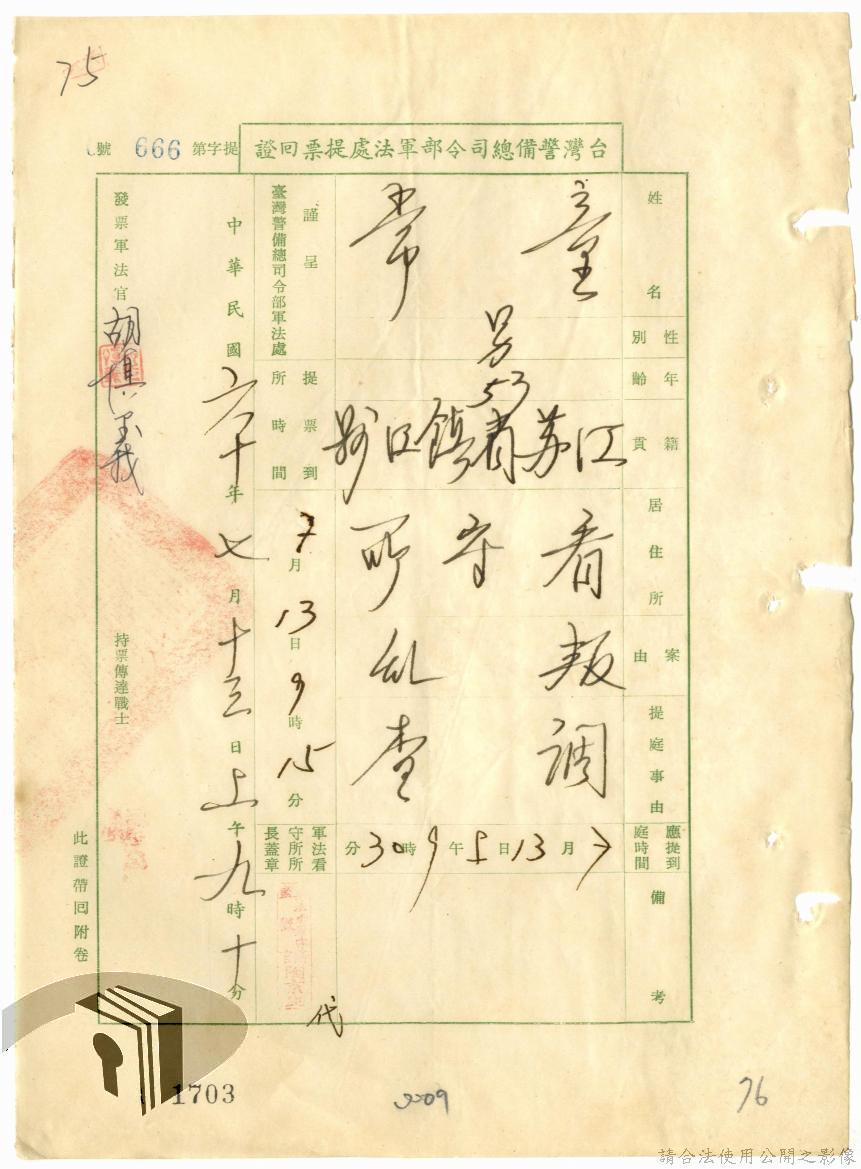 75
台灣警備總司令部軍法處提票回證
提字第 666 號
姓名 童常
性別 男
年齡 53
籍貫 江苏省鎮江縣
居住所 看守所
案由 叛乱
提庭事由 調查
應提到庭時間 7月13日上午9時30分
備考
軍法看守所所長蓋章
代
提票到所時間 7月13日9時15分
謹呈
臺灣警備總司令部軍法處
中華民國六十年七月十三日上午九時十分
發票軍法官 胡
持票傳達戰士
此證帶回附卷
1703
76
請合法使用公開之影像